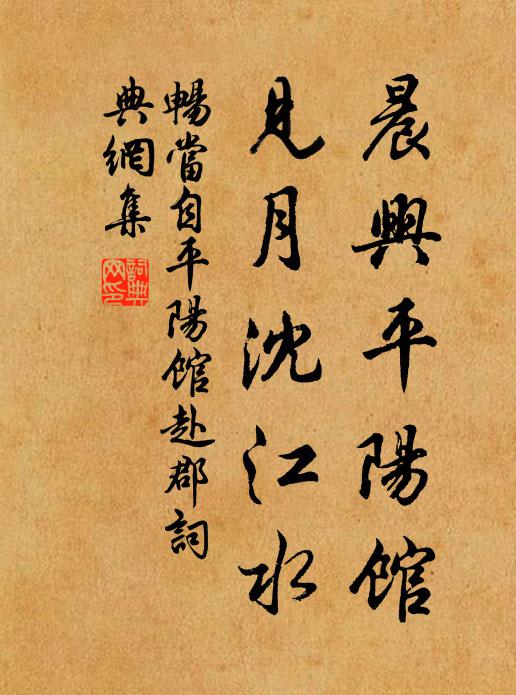 晨興平陽館
見月沈江水
暢當自平陽館赴郡詞
典網集
詞典网印